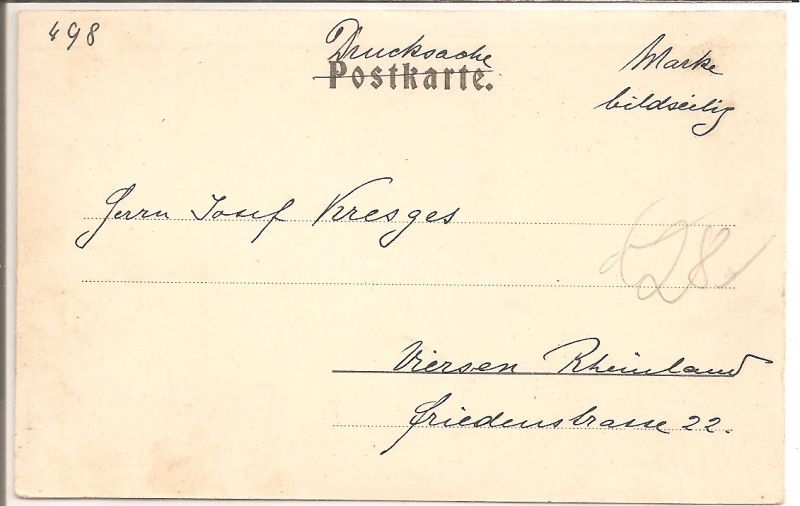 498
Drucksache
Postkarte.
Marke
bildseitig
Herrn Josef Kresges
28
Viersen Rheinland
Friedenstrasse 22.